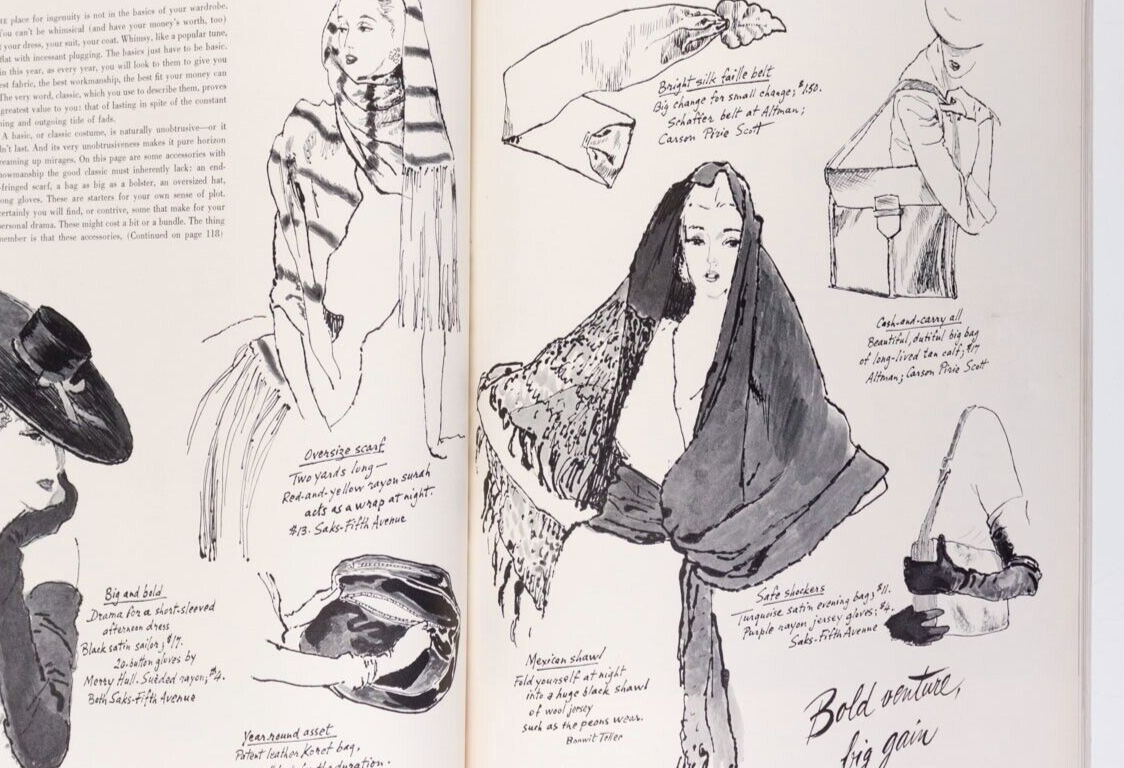 place for ingenuity is not in the basics of your wardrobe.
You can't be whimsical (and have your money's worth, too)
your dress, your suit, your coat. Whimsy, like a popular tune,
flat with incessant plugging. The basics just have to be basic.
in this year, as every year, you will look to them to give you
est fabric, the best workmanship, the best fit your money can
The very word, classic, which you use to describe them, proves
greatest value to you: that of lasting in spite of the constant
ing and outgoing tide of fads.
A basic, or classic costume, is naturally unobtrusive—or it
n't last. And its very unobtrusiveness makes it pure horizon
reaming up mirages. On this page are some accessories with
howmanship the good classic must inherently lack: an end-
fringed scarf, a bag as big as a bolster, an oversized hat,
ong gloves. These are starters for your own sense of plot.
ertainly you will find, or contrive, some that make for your
ersonal drama. These might cost a bit or a bundle. The thing
member is that these accessories, (Continued on page 118)
Oversize scarf
Two yards long—
Red-and-yellow rayon surah
acts as a wrap at night.
$13. Saks-Fifth Avenue
Big and bold
Drama for a short-sleeved
afternoon dress
Black satin sailor; $17.
20-button gloves by
Merry Hull. Sueded rayon; $4.
Both Saks-Fifth Avenue
Year-round asset
Patent leather Koret bag,
the duration.
Bright silk faille belt
Big change for small change; $150.
Schaffer belt at Altman;
Carson Pirie Scott
Cash-and-carry all
Beautiful, dutiful big bag
of long-lived tan calf; $17
Altman; Carson Pirie Scott
Safe shockers
Turquoise satin evening bag; $11.
Purple rayon jersey gloves; $4.
Saks-Fifth Avenue
Mexican shawl
Fold yourself at night
into a huge black shawl
of wool jersey
such as the peons wear.
Bonwit Teller
Bold venture,
big gain